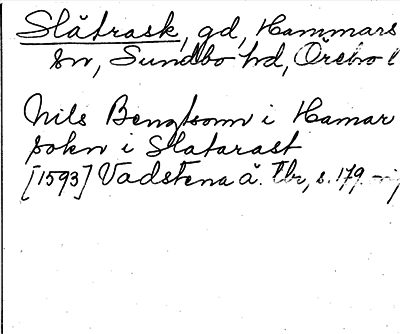 Slåtrask, gd, Hammars
sn, Sundbo hd, Örebro l
Nils Bengtsonn i Hamar
sokn i Slatarast
[1593] Vadstena ä. Tbr, s. 179